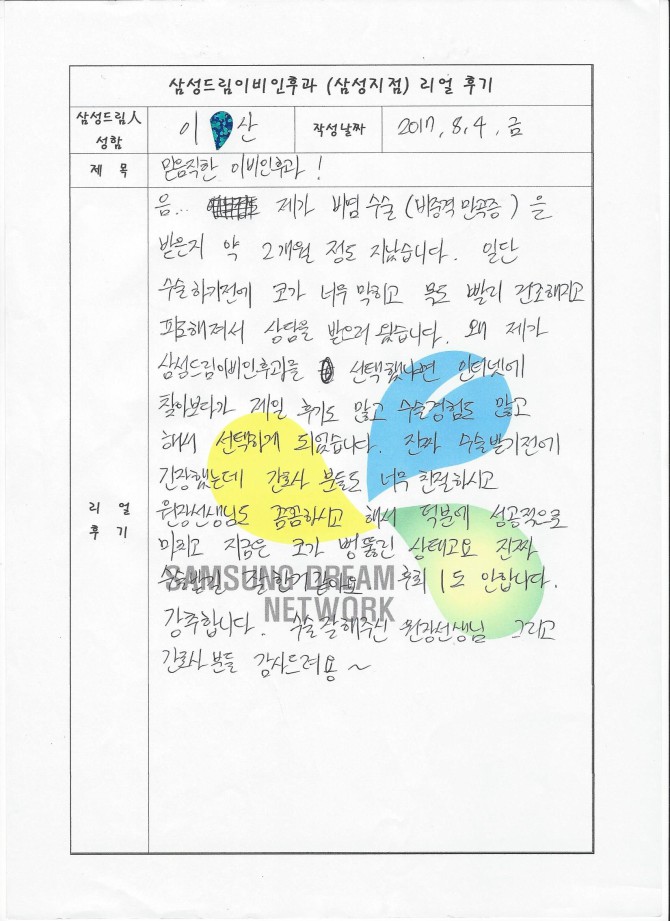 삼성드림이비인후과 (삼성지점) 리얼 후기
삼성드림人 성함 이 산 작성날짜 2017. 8. 4. 금
제 목 믿음직한 이비인후과!
음... 제가 비염수술 (비중격 만곡증) 을
받은지 약 2개월 정도 지났습니다. 일단
수술하기전에 코가 너무 막히고 목도 빨리 건조해지고
피로해져서 상담을 받으러 왔습니다. 왜 제가
삼성드림이비인후과를 선택했냐면 인터넷에
찾아보다가 제일 후기도 많고 수술경험도 많고
해서 선택하게 되었습니다. 진짜 수술받기전에
긴장했는데 간호사 분들도 너무 친절하시고
리 얼 후 기
원장선생님도 꼼꼼하시고 해서 덕분에 성공적으로
마치고 지금은 코가 뻥뚫린 상태고요 진짜
수술받길 잘한거같아요 후회 1도 안합니다.
SAMSUNG DREAM
NETWORK
강추합니다. 수술잘해주신 원장선생님 그리고
간호사분들 감사드려용 ~